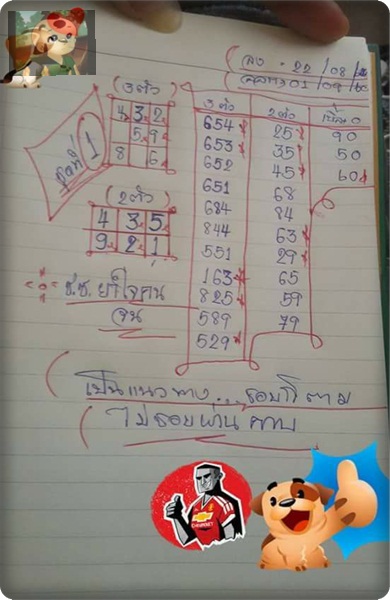 ลง . 22/08/
01/09/
(3 ตัว)
4 3 2
5 9
8 6
ชุดที่ 1
(2 ตัว)
4 3 5
9 2 1
3 ตัว 2 ตัว
654 25 90
653 35 50
652 45 60
651 68
684 84
844 63
551 29
163 65
825 59
589 79
529
ช.ช. ย้ำใจคน
จน
เป็นแนวทาง... ชอบก็ตาม
ไม่ชอบผ่าน ครับ
CHEVROLET